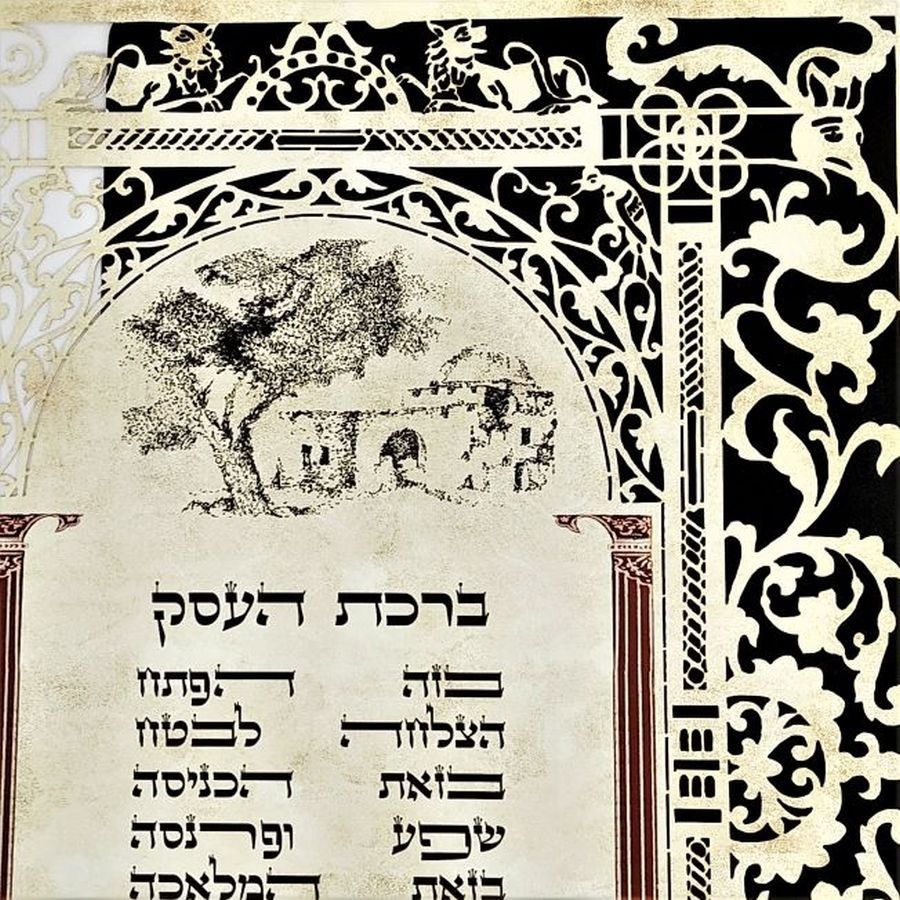 ברכת העסק
בזה הפתח
הצלחה לבטח
בזאת הכניסה
שפע ופרנסה
בזאת המלאכה